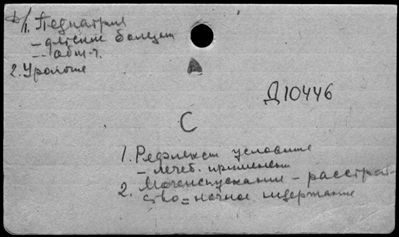 1. Педиатрия
– детские болезни
– общ. ч.
2. Урология
Д10446
С
1. Рефлексы условные
– лечеб. применен.
2. Мочеиспускание – расстрой-
ство = ночное недержание